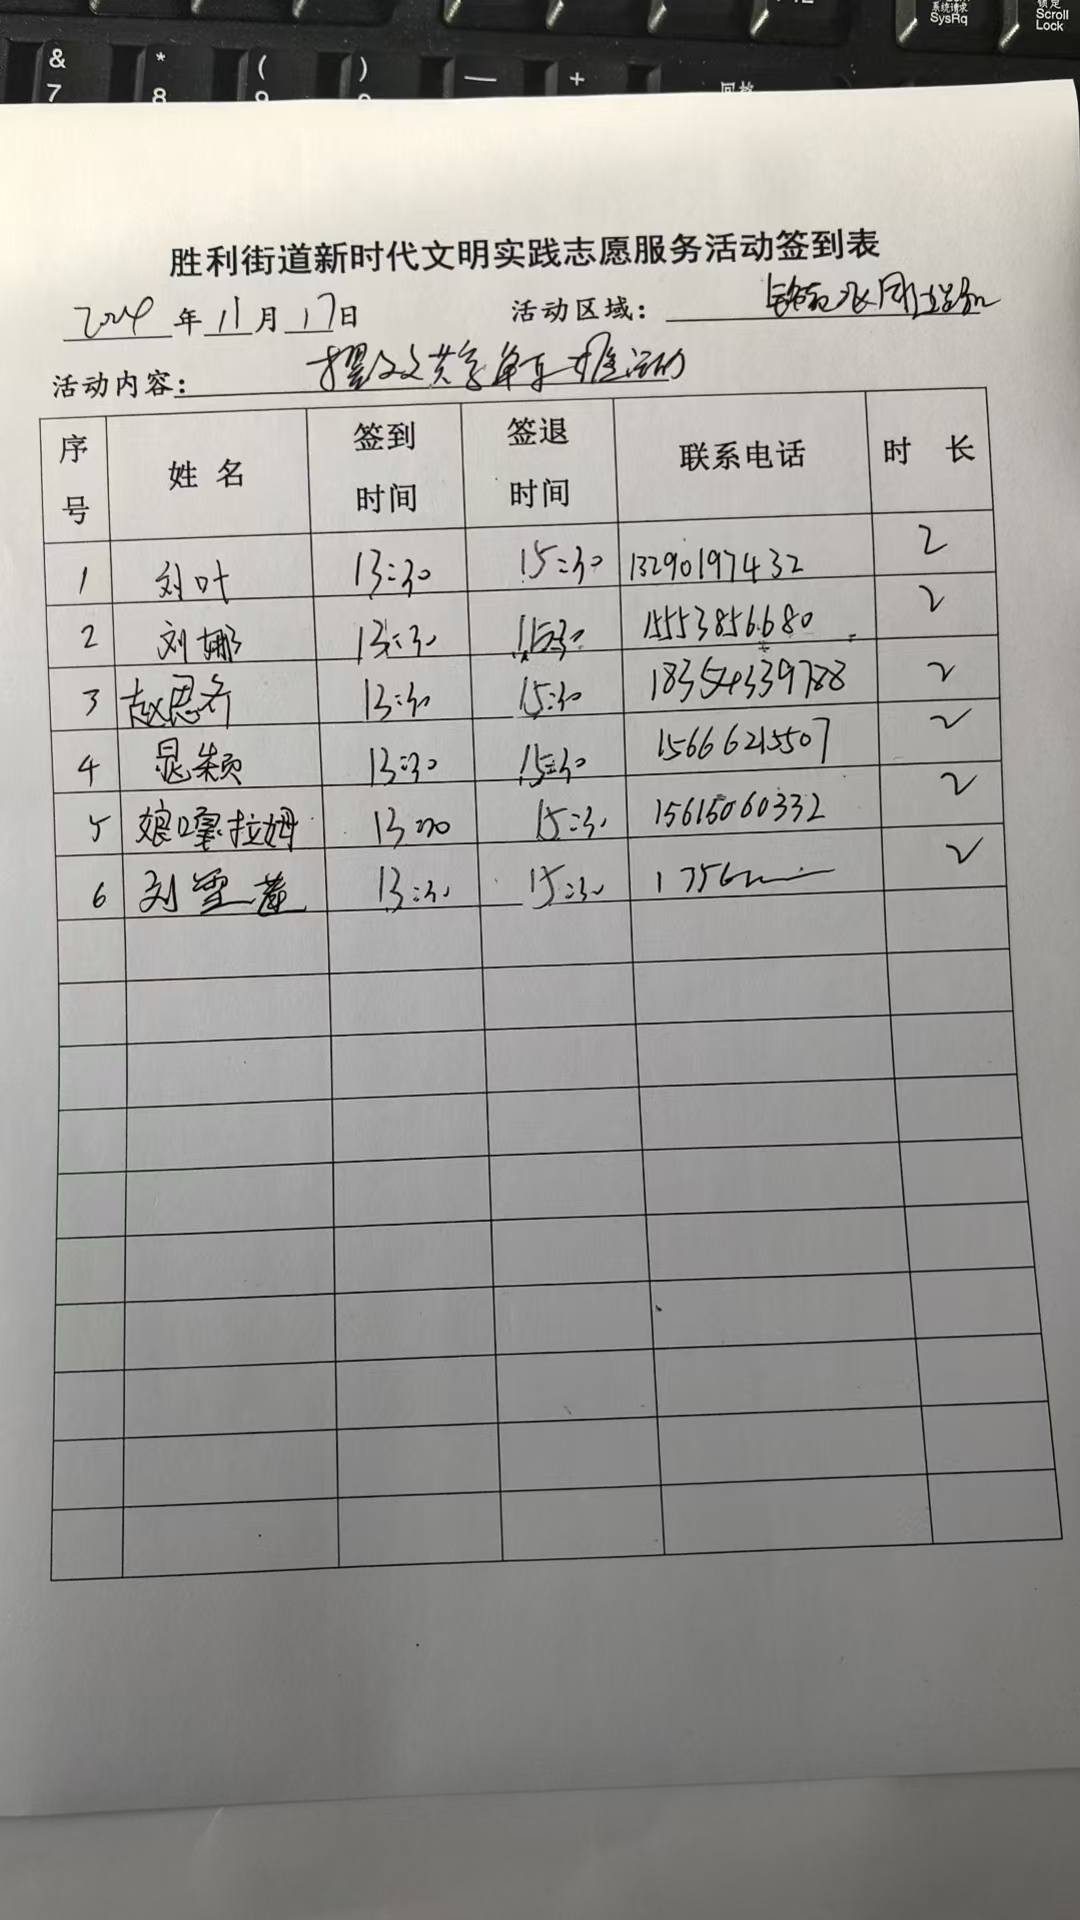 系统请求
SysRq
锁定
Scroll
Lock
&
7
*
8
(
9
)
—
+
胜利街道新时代文明实践志愿服务活动签到表
2024年11月17日 活动区域:
活动内容: 共享单车
序号 姓名 签到时间 签退时间 联系电话 时长
1 刘叶 13:30 15:30 13290197432 2
2 刘娜 13:30 15:30 15553856680 2
3 赵思齐 13:30 15:30 18354339788 2
4 晁颖 13:30 15:30 15666215507 2
5 娘嘎拉姆 13:30 15:30 15615060332 2
6 刘雪 13:30 15:30 1756 2